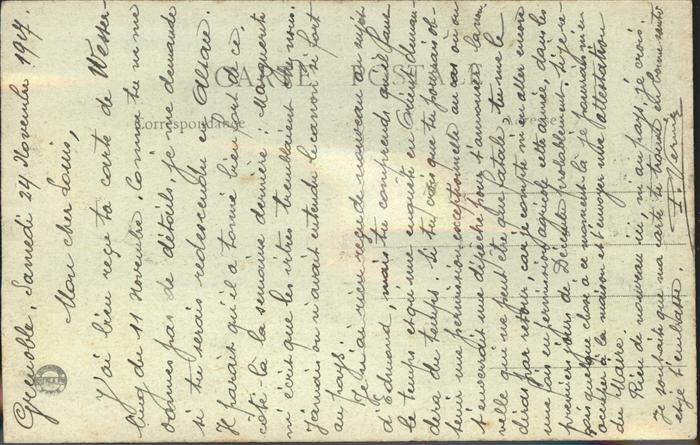 Grenoble, Samedi 24 Novembre 1917.
Mon cher Louis,
J'ai bien reçu ta carte de Wesser-
ling du 11 Novembre. Comme tu ne me
donnes pas de détails, je me demande
si tu serais redescendu en Alsace.
Il paraît qu'il a tonné bien dur de ce
côté-là la semaine dernière ; Marguerite
m'écrit que les vitres tremblaient chez nous.
Jamais on n'avait entendu le canon si fort
au pays.
Je n'ai rien reçu de nouveau au sujet
d'Edmond, mais tu comprends qu'il faut
le temps et qu'une enquête en Orient deman-
dera du temps. Si tu crois que tu pourrais ob-
tenir une permission exceptionnelle au cas où on
t'enverrait une dépêche pour t'annoncer la nou-
velle qui ne peut être que fatale, tu me le
diras par retour car je compte m'en aller encore
une fois en permission agricole cette année, dans les
premiers jours de Décembre probablement. S'il se
passe quelque chose à ce moment-là je pourrais m'en
occuper à la maison et t'envoyer une attestation
du Maire.
Rien de nouveau ici, ni au pays, je crois.
Je souhaite que ma carte te trouve en bonne santé
et je t'embrasse.
CARTE POSTALE
Correspondance
Adresse